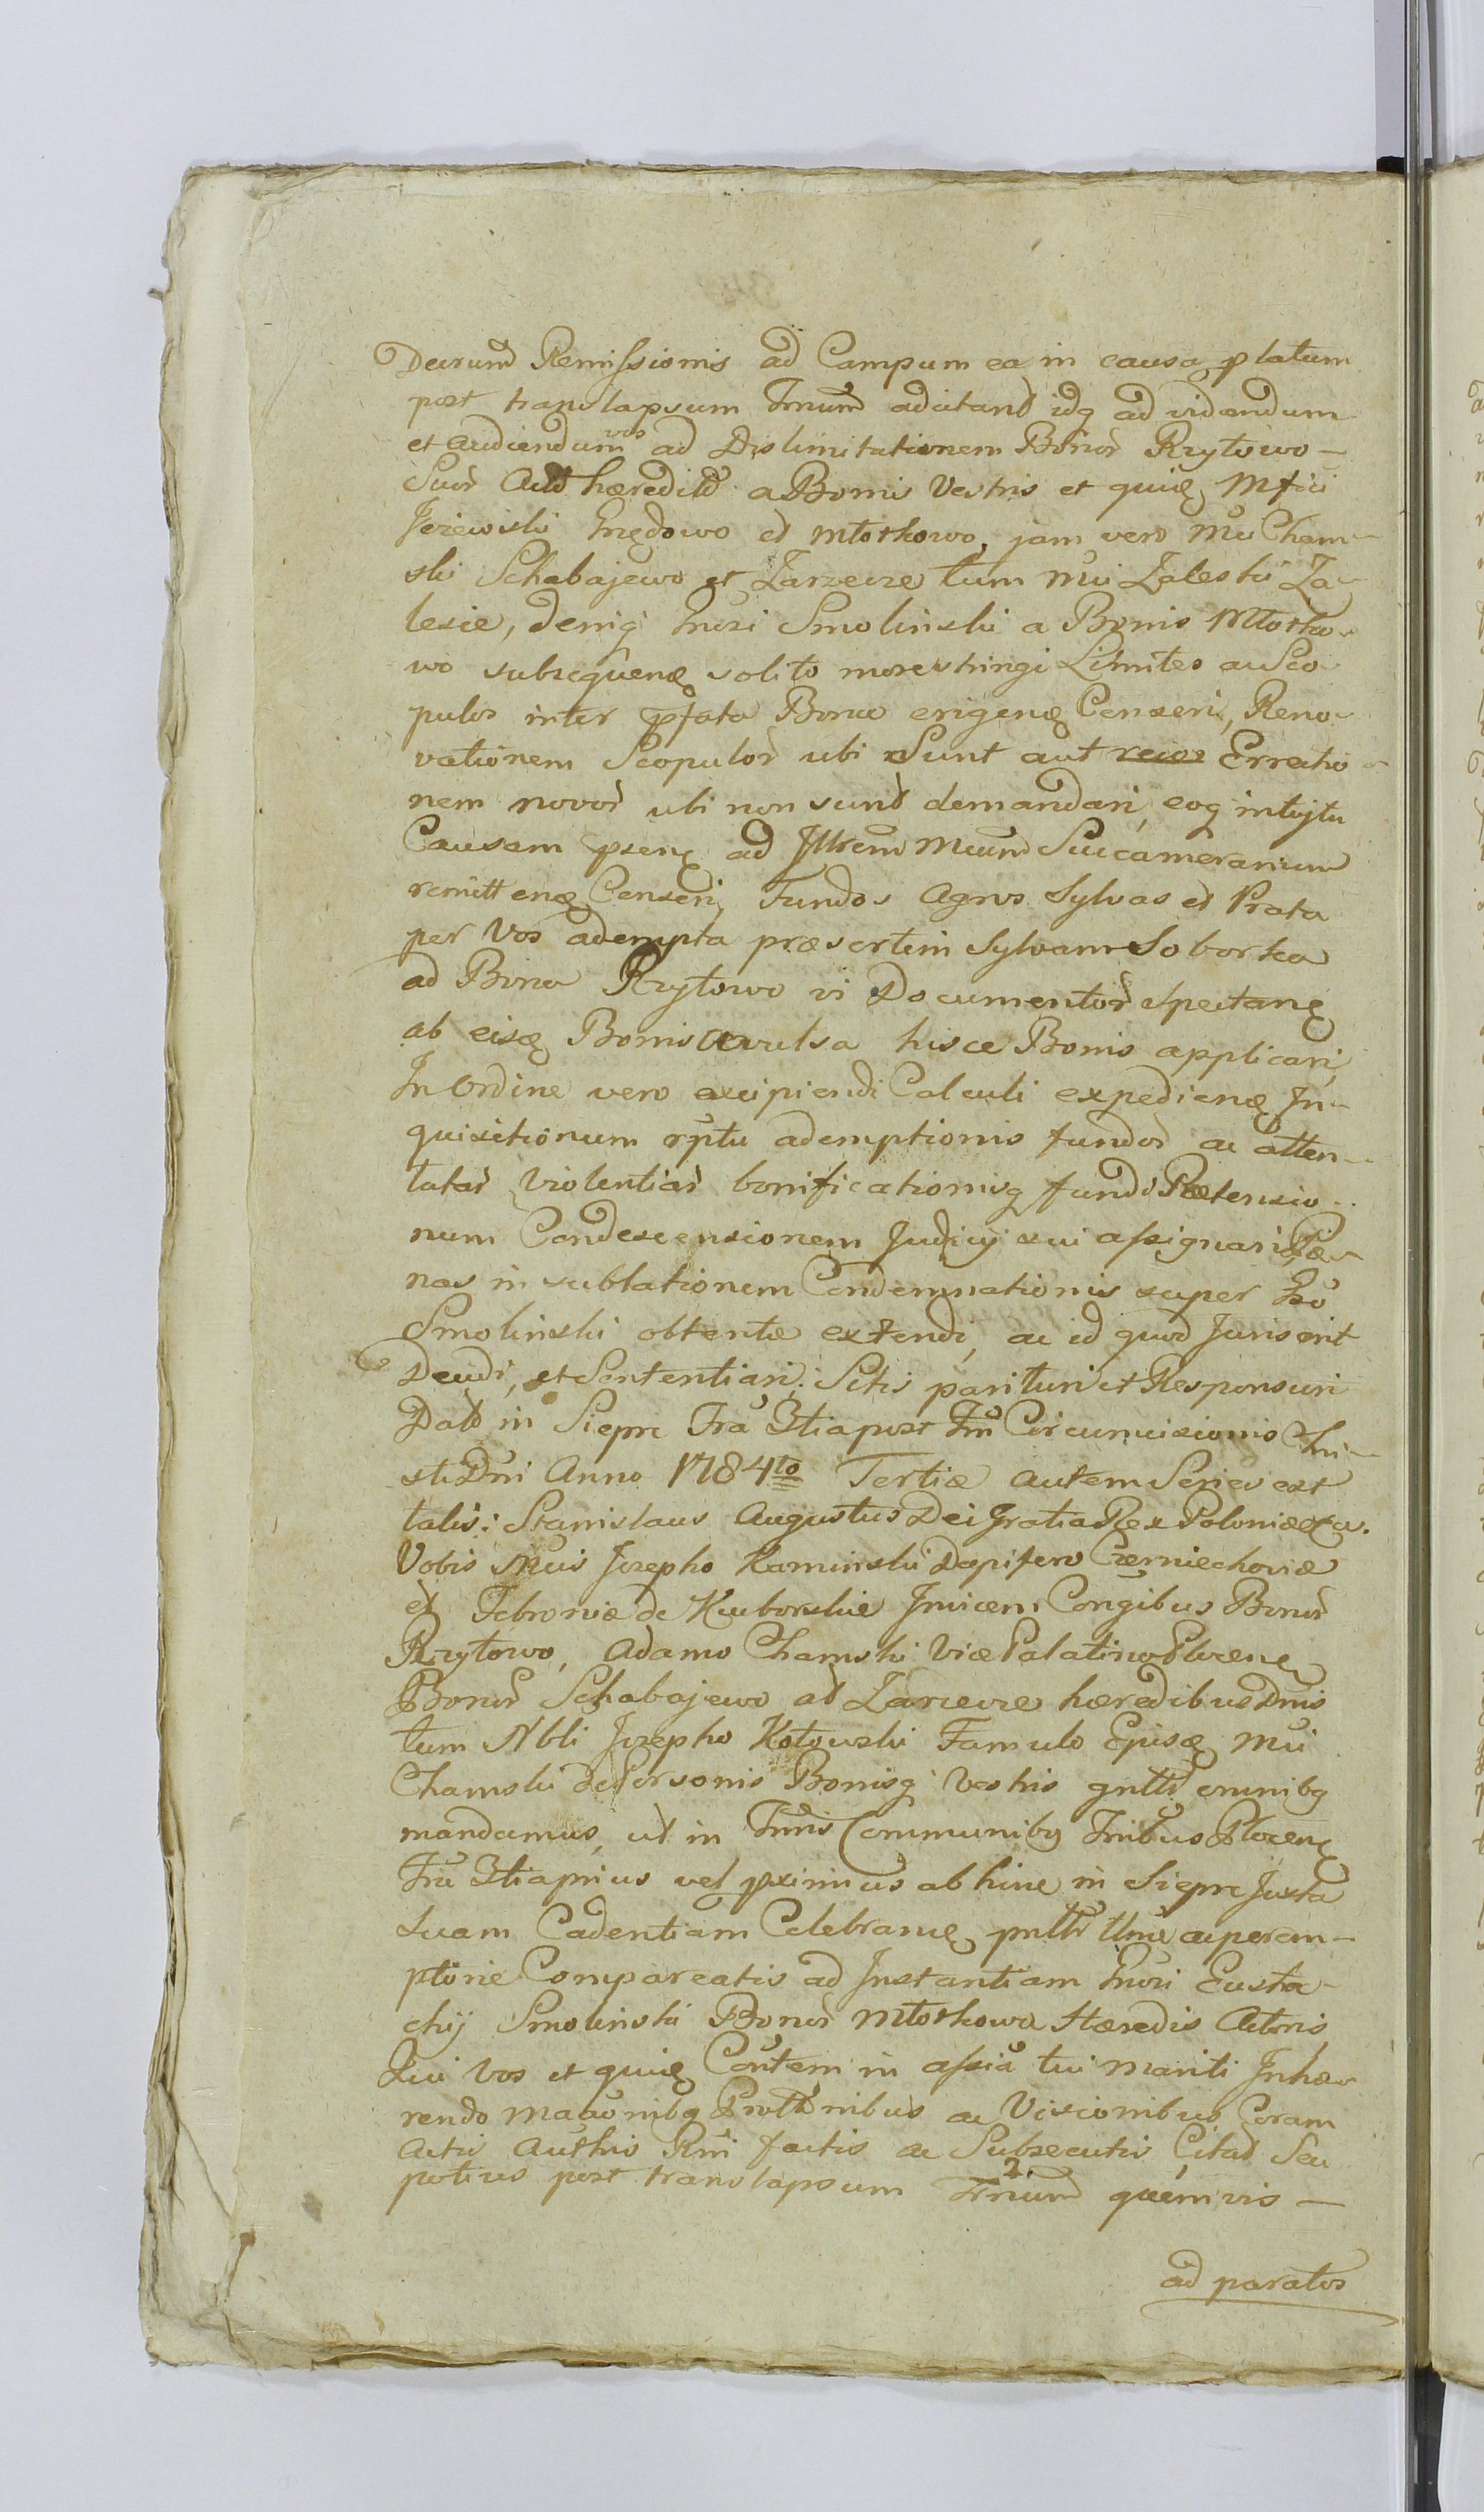 Decrum Remissionis ad Campum ea in causa platum
post translapsum Tmum adcitand idq ad videndum
et audiendum vos ad Dislimitationem Bonor Rzytowo —
Suor Actd hæreditd a Bonis Vestris et quide Mfici
Jeżewiski Gnędowo et Młotkowo, jam vero Mci Cham-
ski Schabajewo et Zarzecze tum Mci Zaleski Za-
lesie, deniq Gnosi Smolinski a Bonis Młotko-
wo subsequene solito more stringi Limites ac Sco-
pulos inter pfata Bona erigene Censeri, Reno-
vationem Scopulor ubi Sunt aut Erectio-
nem novor ubi non sunt demandari, eoq intuytu
Causam psene ad Jllrem Mcum Succamerarium
remittene Censeri, Fundos Agros Sylvas et Prata
per Vos adempta præsertim Sylvam Soborka
ad Bona Rzytowo vi Documentor spectane
ab eise Bonis avulsa hisce Bonis applicari,
In Ordine vero excipiendi Calculi expediene In-
quisitionum rptu ademptionis fundor ac atten-
tatar Violentiar bonificationisq fundi Prætensio-
num Condescensionem Judicij sui assignari, Pæ-
nas in sublationem Condemnationis super Gso
Smolinski obtentæ extendi, ac id quod Juris erit
Decidi, et Sententiari; Sitis parituri et Responsuri
Datt in Sieprc Fra 3tia post Fm Circumcisionis Chri-
sti Dni Anno 1784to Tertiæ autem Series est
talis: Stanislaus Augustus Dei Gratia Rex Poloniæ &ca.
Vobis Mcis Josepho Kaminski Dapifero Czerniechoviæ
et Febroniæ de Kuborskie Invicem Congibus Bonor
Rzytowo, Adamo Chamski Vice Palatino Plocene
Bonor Schabajewo at Zarzecze hæredibus Dnis
tum Nbli Josepho Kotowski Famulo Ejuse Mci
Chamski de Personis Bonisq Vestris gnlltr omnibq
mandamus, ut in Tmis Communibq Tribus Plocene
Fra 3tia prius vel pximius ab hinc in Sieprc Juxta
Suam Cadentiam Celebrane pnltr ac peram-
ptorie Compareatis ad Instantiam Gnosi Eusta-
chij Smolinski Bonor Młotkowo Hæredis Actoris
Qui Vos et quide Contem in assia tui Mariti Inhæ-
rendo ac Visionibus Coram
Actis Authis Rni factis ac Subsecutis Citat Seu
potius post translapsum Trnum 2 quemvis —
ad paratos